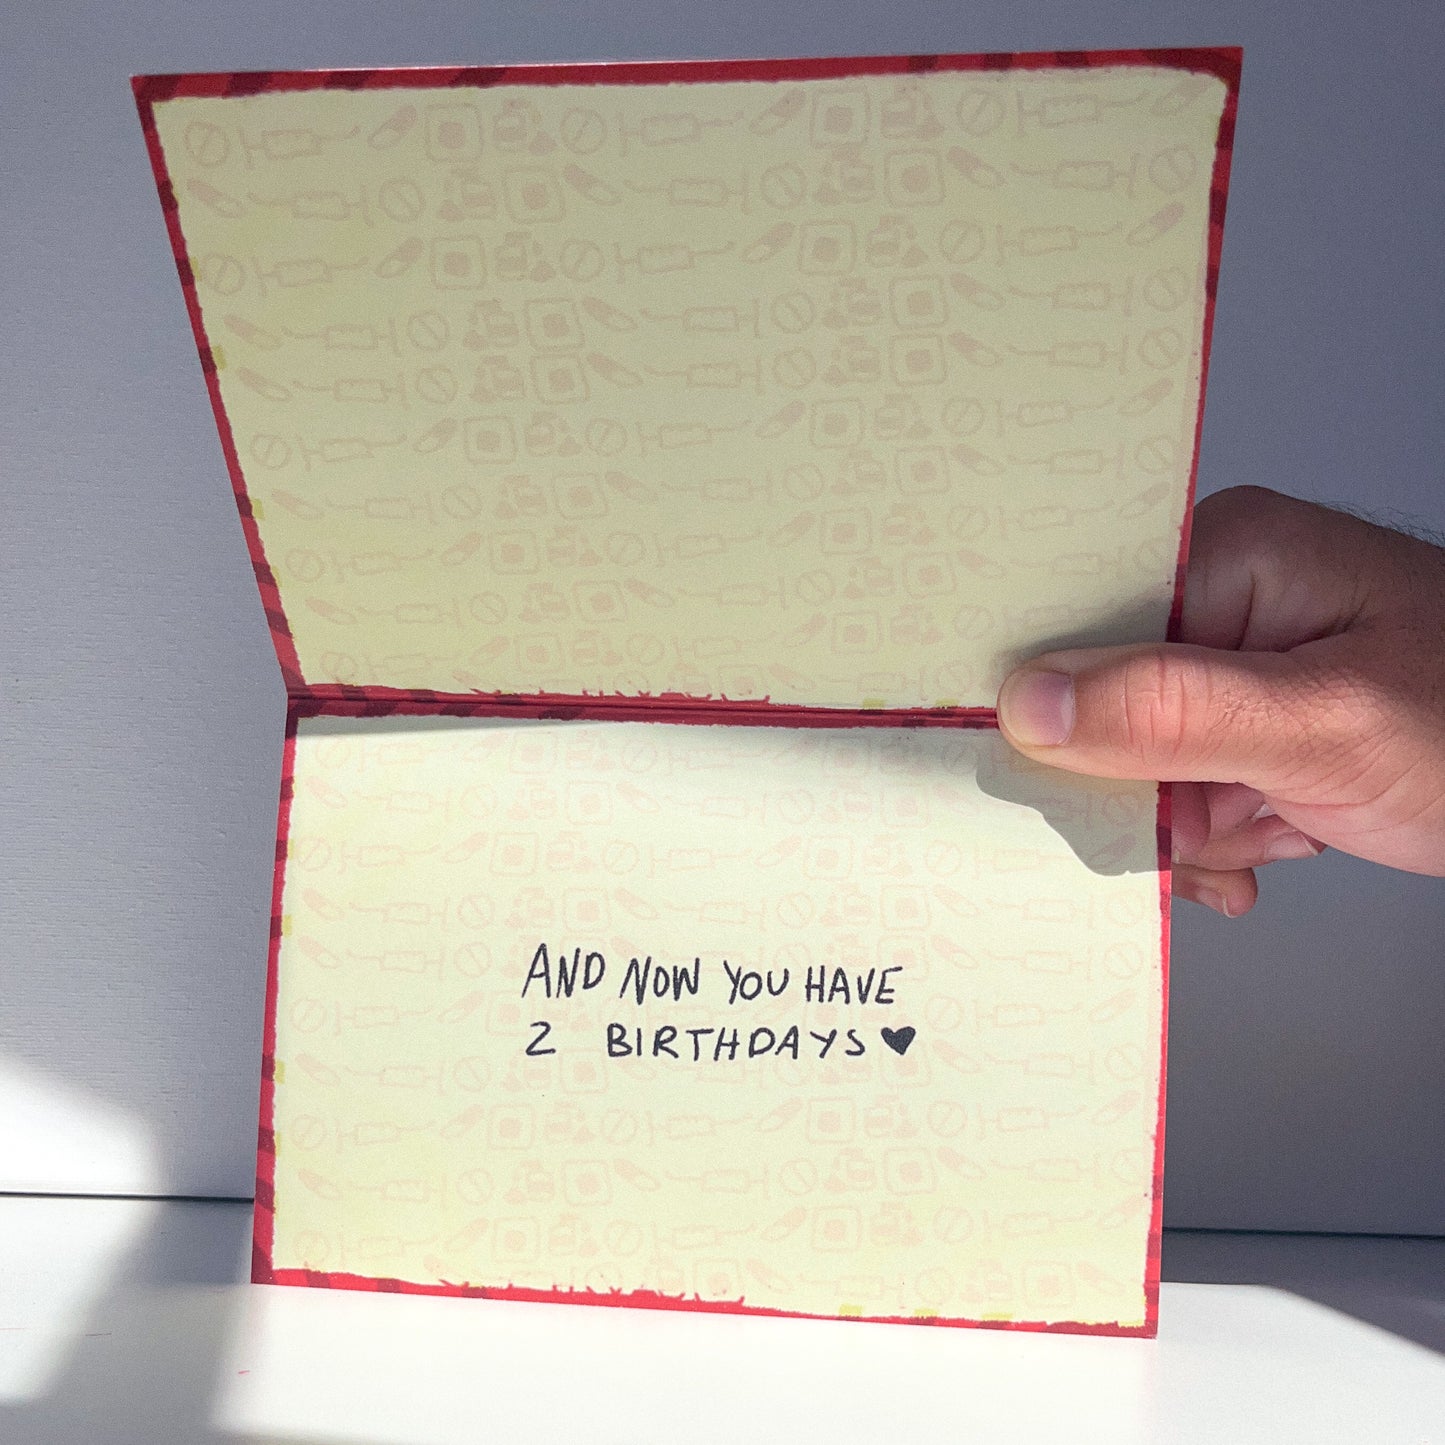 AND NOW YOU HAVE
2 BIRTHDAYS♥